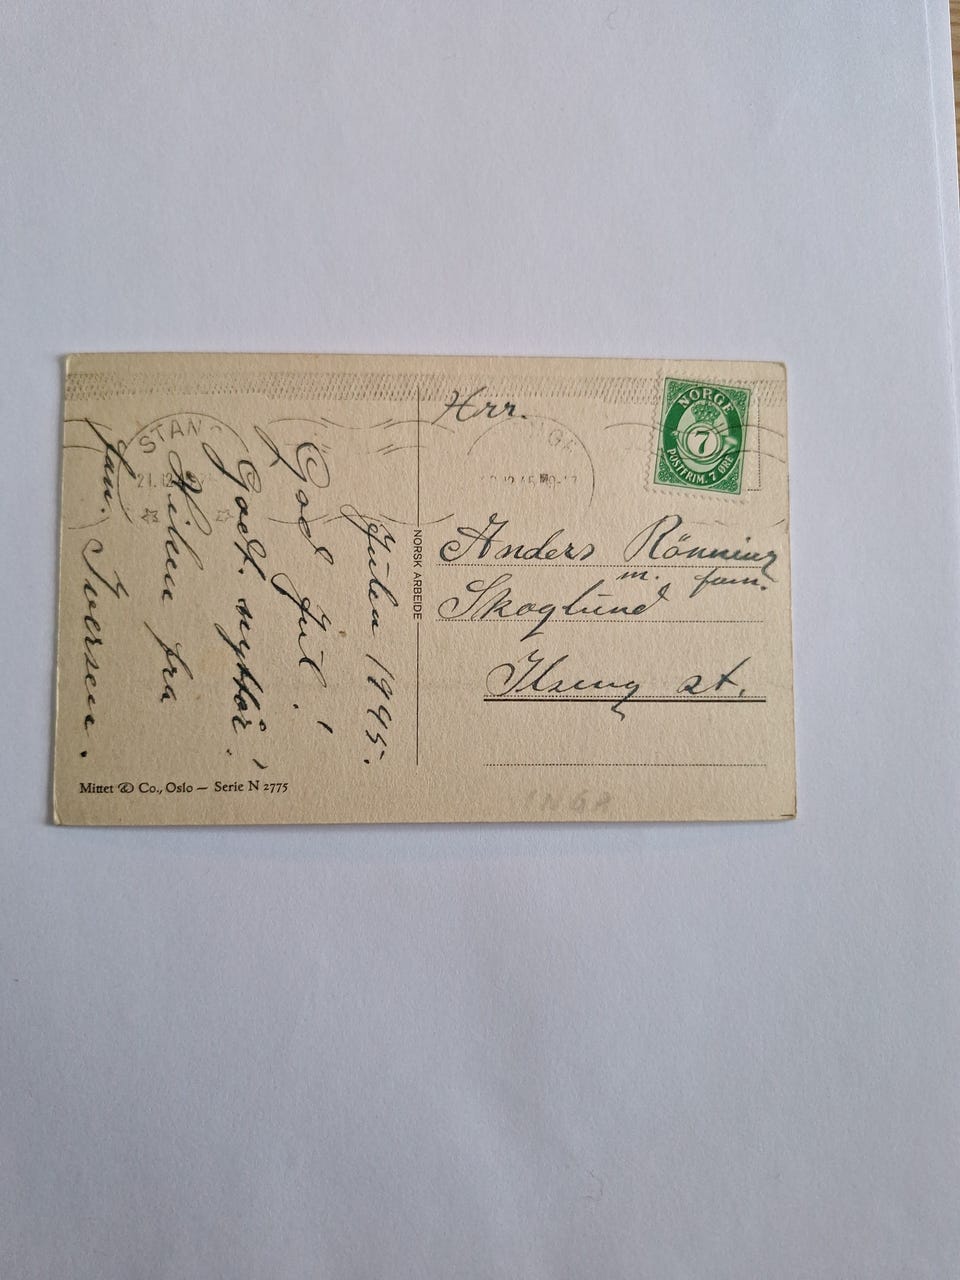 Julen 1945.
God Jul!
Godt nyttår!
Hilsen fra
fam. Iversen.
Mittet & Co., Oslo — Serie N 2775
NORSK ARBEIDE
STAN
21.12
NORGE
7
POSTFRIM. 7 ØRE
Hrr.
Anders Rönning
m. fam.
Skoglund
Ilseng st.